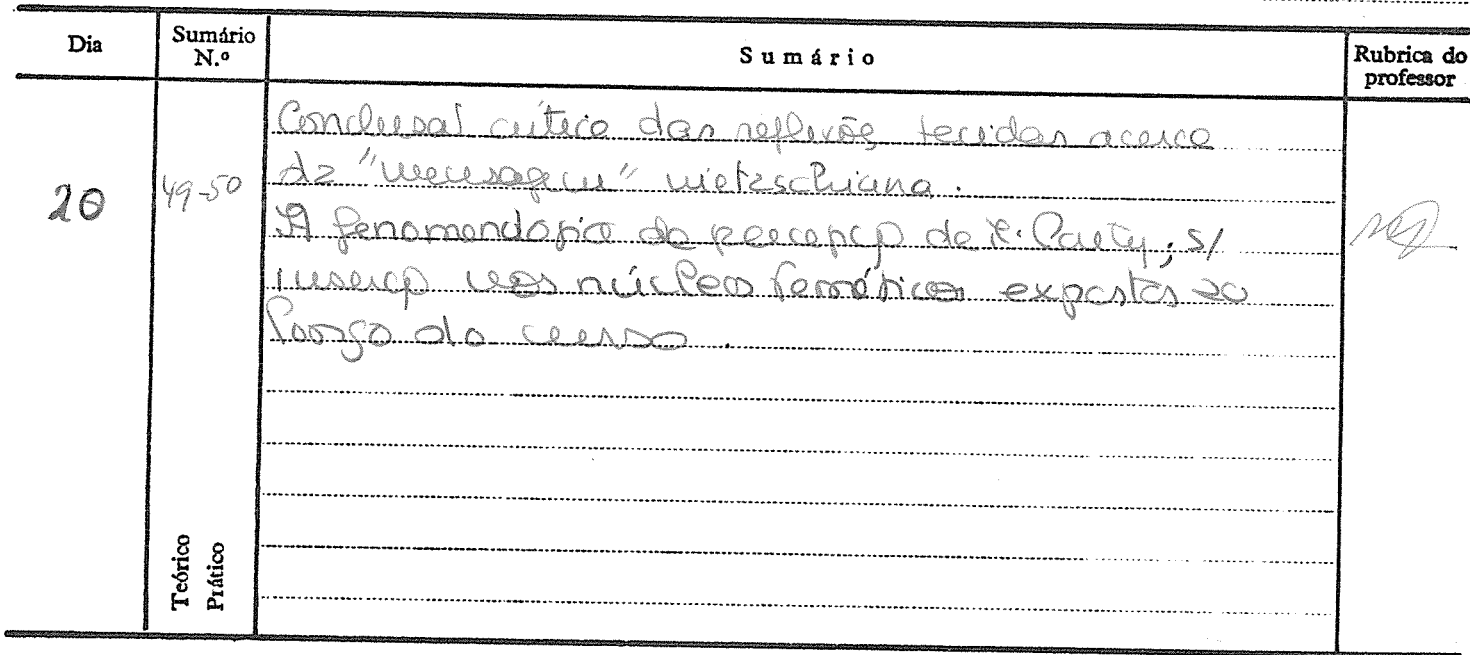 Dia
Sumário N.º
Sumário
Rubrica do professor
20
49-50
Conclusão crítica das reflexões tecidas acerca
da "mensagem" nietzschiana.
A fenomenologia da percepç de M. Ponty; s/
inserç nos núcleos temáticos expostos ao
longo do curso.
Teórico
Prático